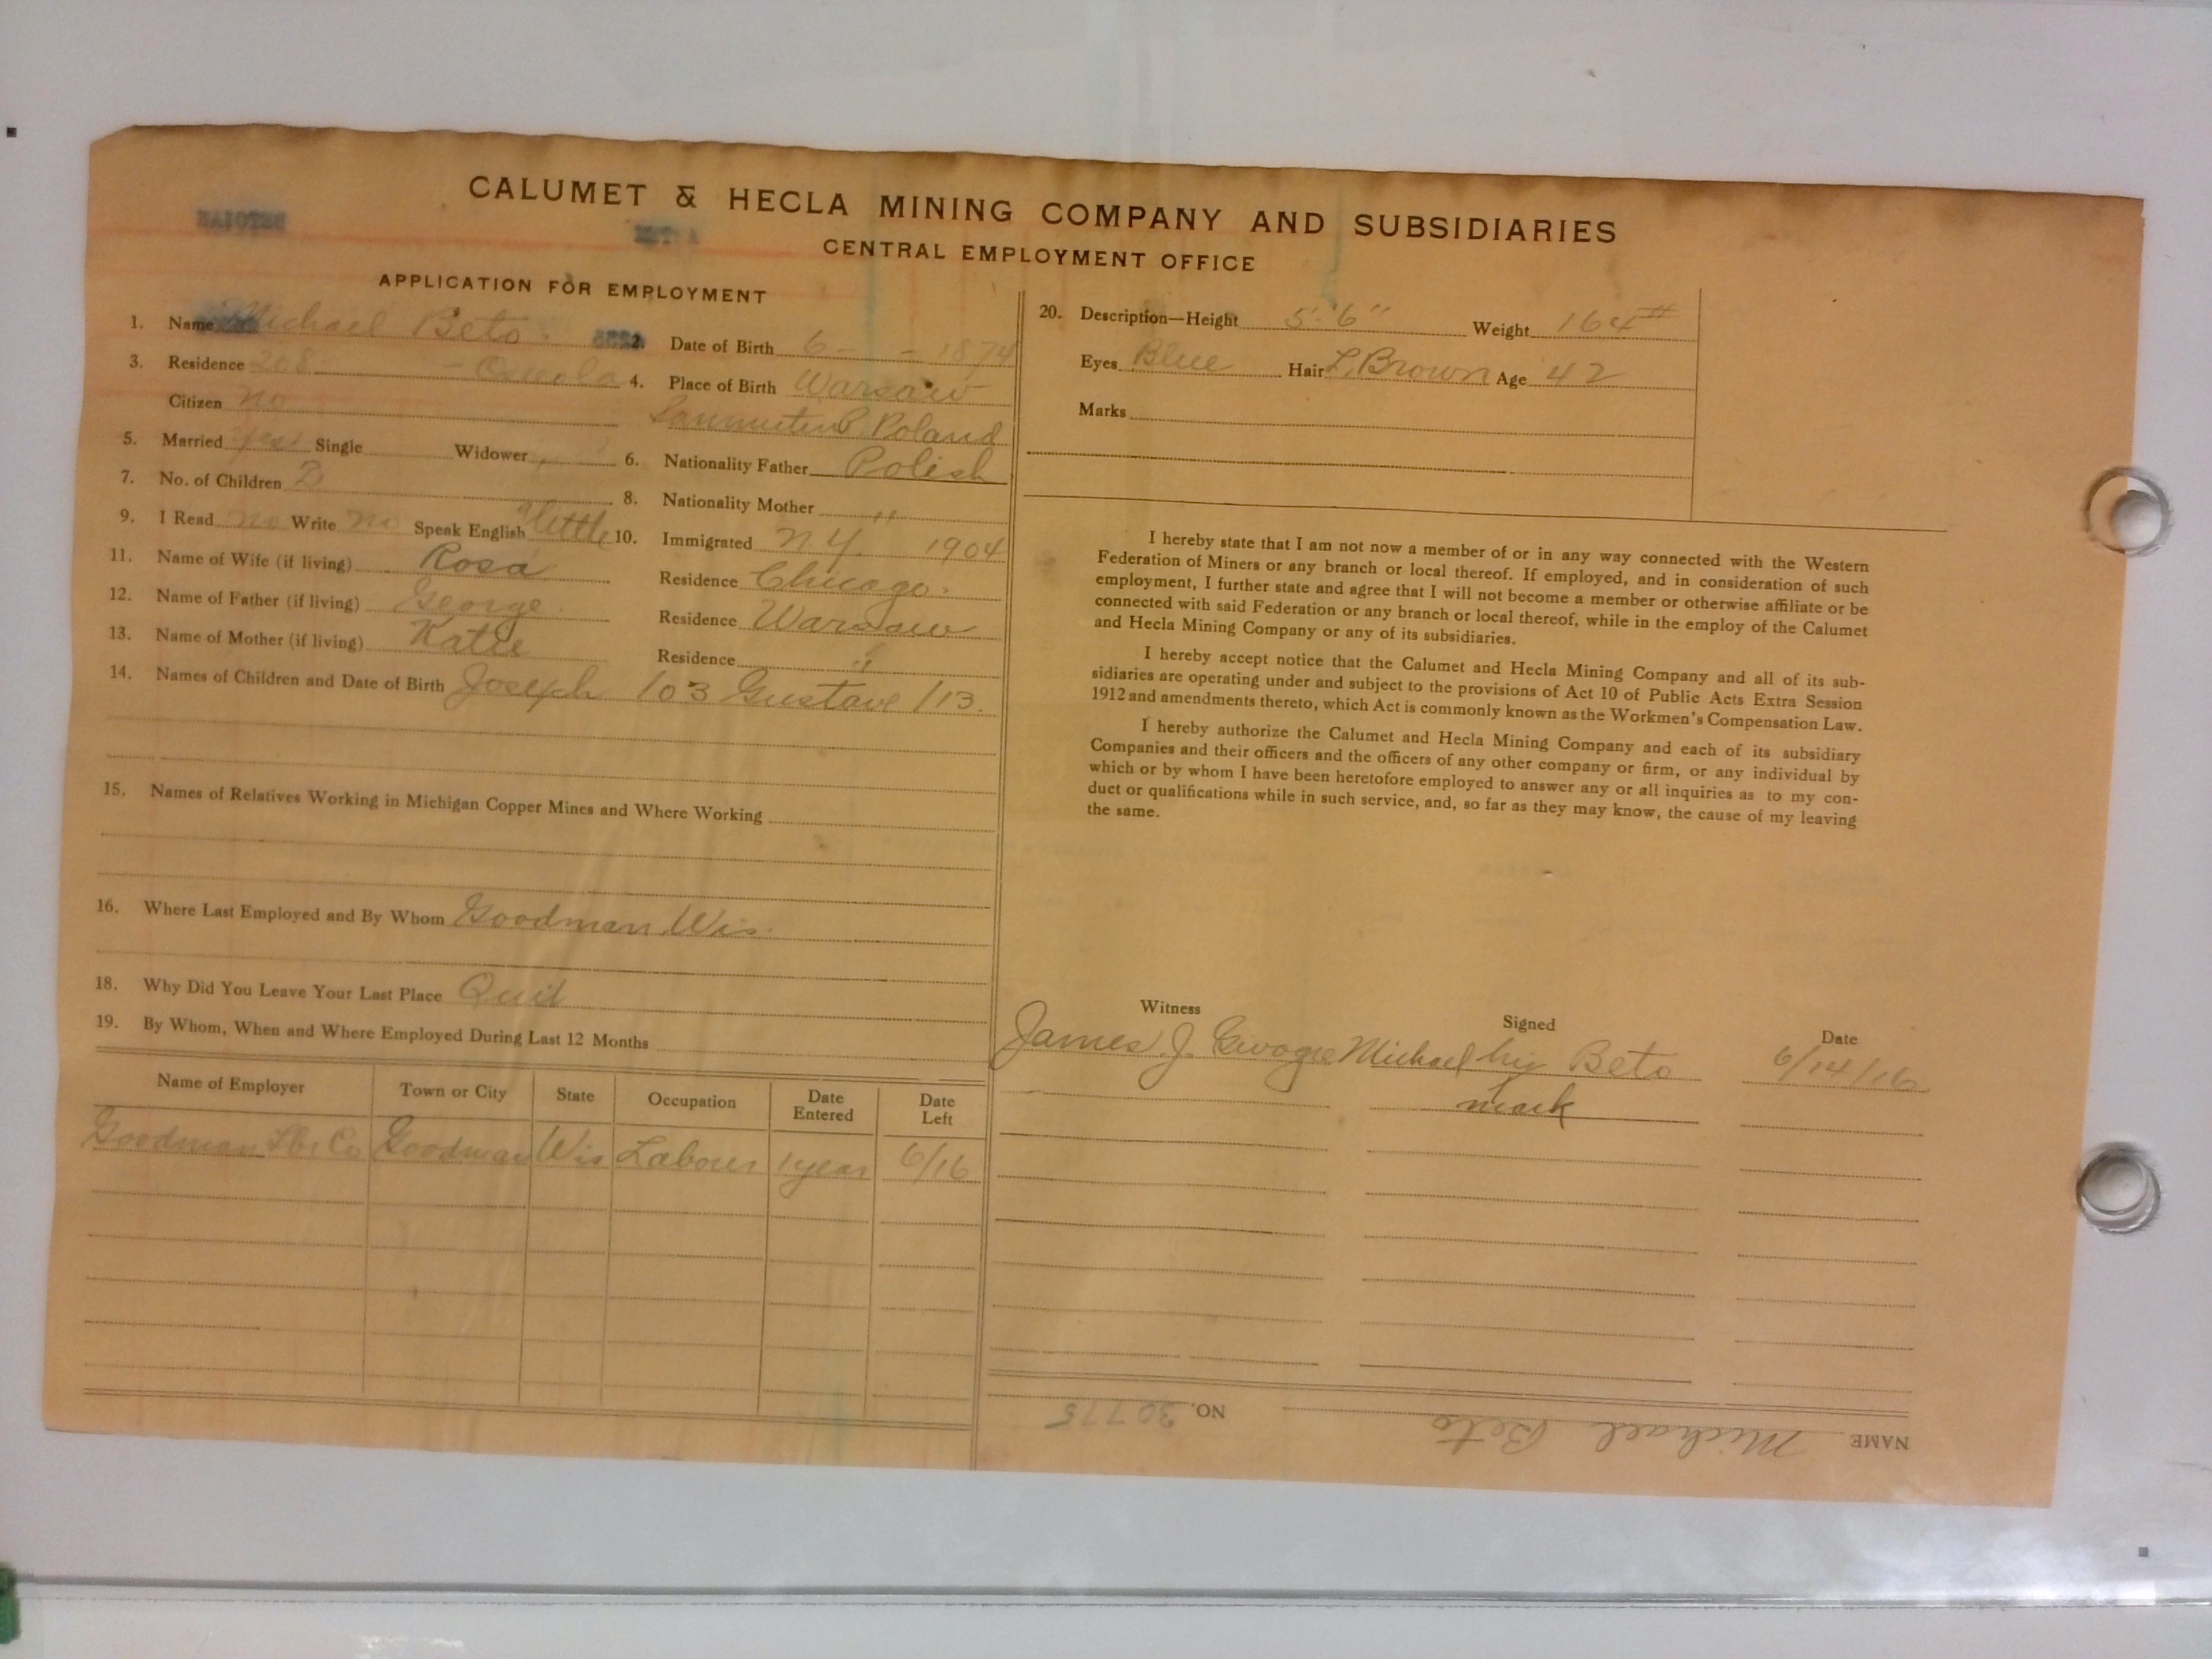 CALUMET & HECLA MINING COMPANY AND SUBSIDIARIES
CENTRAL EMPLOYMENT OFFICE
APPLICATION FOR EMPLOYMENT
1. Name Michael Beto.
2. Date of Birth 6 - - 1874
3. Residence 208 - Osceola
4. Place of Birth Warsaw
Poland
Citizen no
5. Married yes Single Widower
6. Nationality Father Polish
7. No. of Children 2
8. Nationality Mother "
9. I Read no Write no Speak English little
10. Immigrated N.Y. 1904
11. Name of Wife (if living) Rosa
Residence Chicago.
12. Name of Father (if living) George
Residence Warsaw
13. Name of Mother (if living) Katie
Residence "
14. Names of Children and Date of Birth Joseph /03 Gustave /13.
15. Names of Relatives Working in Michigan Copper Mines and Where Working
16. Where Last Employed and By Whom Goodman Wis.
18. Why Did You Leave Your Last Place Quit
19. By Whom, When and Where Employed During Last 12 Months
Name of Employer Town or City State Occupation Date Entered Date Left
Goodman Lbr Co Goodman Wis Labour 1 year 6/16
20. Description—Height 5'-6" Weight 164#
Eyes Blue Hair L. Brown Age 42
Marks
I hereby state that I am not now a member of or in any way connected with the Western
Federation of Miners or any branch or local thereof. If employed, and in consideration of such
employment, I further state and agree that I will not become a member or otherwise affiliate or be
connected with said Federation or any branch or local thereof, while in the employ of the Calumet
and Hecla Mining Company or any of its subsidiaries.
I hereby accept notice that the Calumet and Hecla Mining Company and all of its sub-
sidiaries are operating under and subject to the provisions of Act 10 of Public Acts Extra Session
1912 and amendments thereto, which Act is commonly known as the Workmen's Compensation Law.
I hereby authorize the Calumet and Hecla Mining Company and each of its subsidiary
Companies and their officers and the officers of any other company or firm, or any individual by
which or by whom I have been heretofore employed to answer any or all inquiries as to my con-
duct or qualifications while in such service, and, so far as they may know, the cause of my leaving
the same.
Witness Signed Date
James J. Michael his Beto 6/14/16
mark
NAME Michael Beto NO. 30775